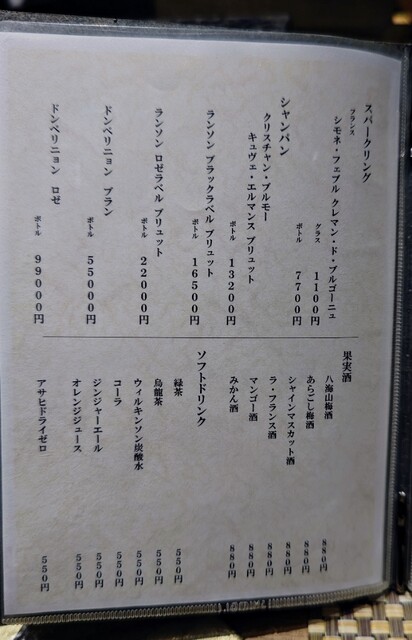 スパークリング
フランス
シモネ・フェブル クレマン・ド・ブルゴーニュ
グラス 1100円
ボトル 7700円
シャンパン
クリスチャン・ブルモー
キュヴェ・エルマンス ブリュット
ボトル 13200円
ランソン ブラックラベル ブリュット
ボトル 16500円
ランソン ロゼラベル ブリュット
ボトル 22000円
ドンペリニョン ブラン
ボトル 55000円
ドンペリニョン ロゼ
ボトル 99000円
果実酒
八海山梅酒 880円
あらごし梅酒 880円
シャインマスカット酒 880円
ラ・フランス酒 880円
マンゴー酒 880円
みかん酒 880円
ソフトドリンク
緑茶 550円
烏龍茶 550円
ウィルキンソン炭酸水 550円
コーラ 550円
ジンジャーエール 550円
オレンジジュース 550円
アサヒドライゼロ 550円